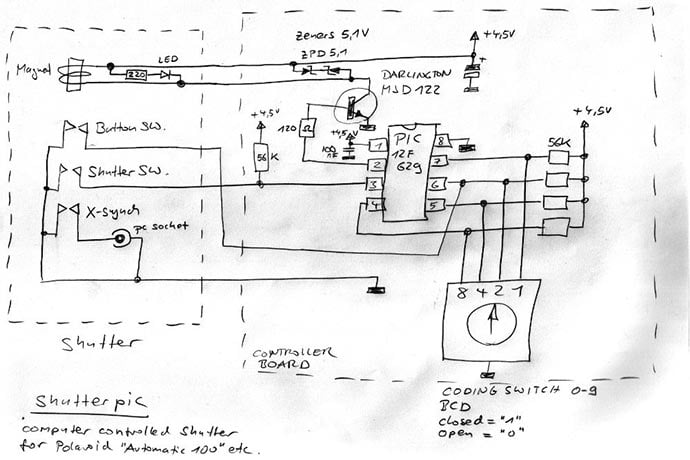 Zeners 5,1V
ZPD 5,1
+4,5V
LED
Magnet
220
+
DARLINGTON
MJD 122
+4,5V
+4,5V
Button SW.
120
Ω
+4,5V
PIC
12F
629
100
nF
56
K
56K
1
2
3
4
8
7
6
5
Shutter SW.
X-synch
pc socket
8 4 2 1
Shutter
CONTROLLER
BOARD
CODING SWITCH 0-9
BCD
closed = "1"
open = "0"
Shutterpic
computer controlled Shutter
for Polaroid "Automatic 100" etc.